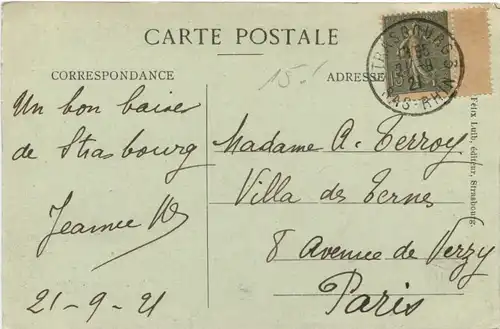 CARTE POSTALE
CORRESPONDANCE
ADRESSE
15.
STRASBOURG 3
21
BAS-RHIN
Un bon baiser
de Strasbourg
Jeanne
21-9-21
Madame A. Terroy
Villa des Ternes
8 Avenue de Verzy
Paris
Félix Luib, éditeur, Strasbourg.